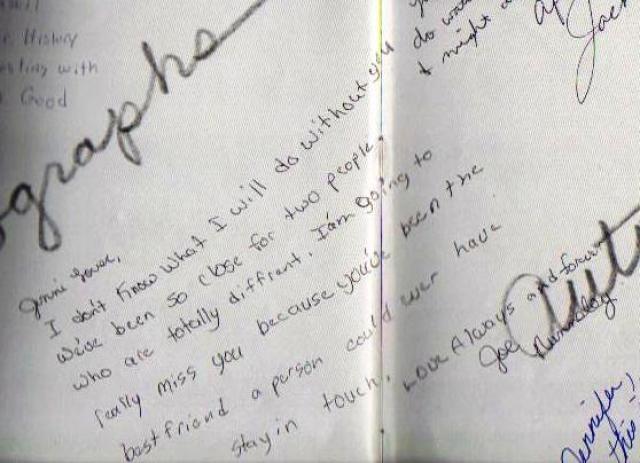 History
with
Good
ographs
do
I might
Jenni
I don't know what I will do without you
We've been so close for two people,
who are totally diffrent. I'am going to
really miss you because you've been the
bestfriend a person could ever have
stay in touch. Love Always and forever
Joe
Auto
Jennifer,
this